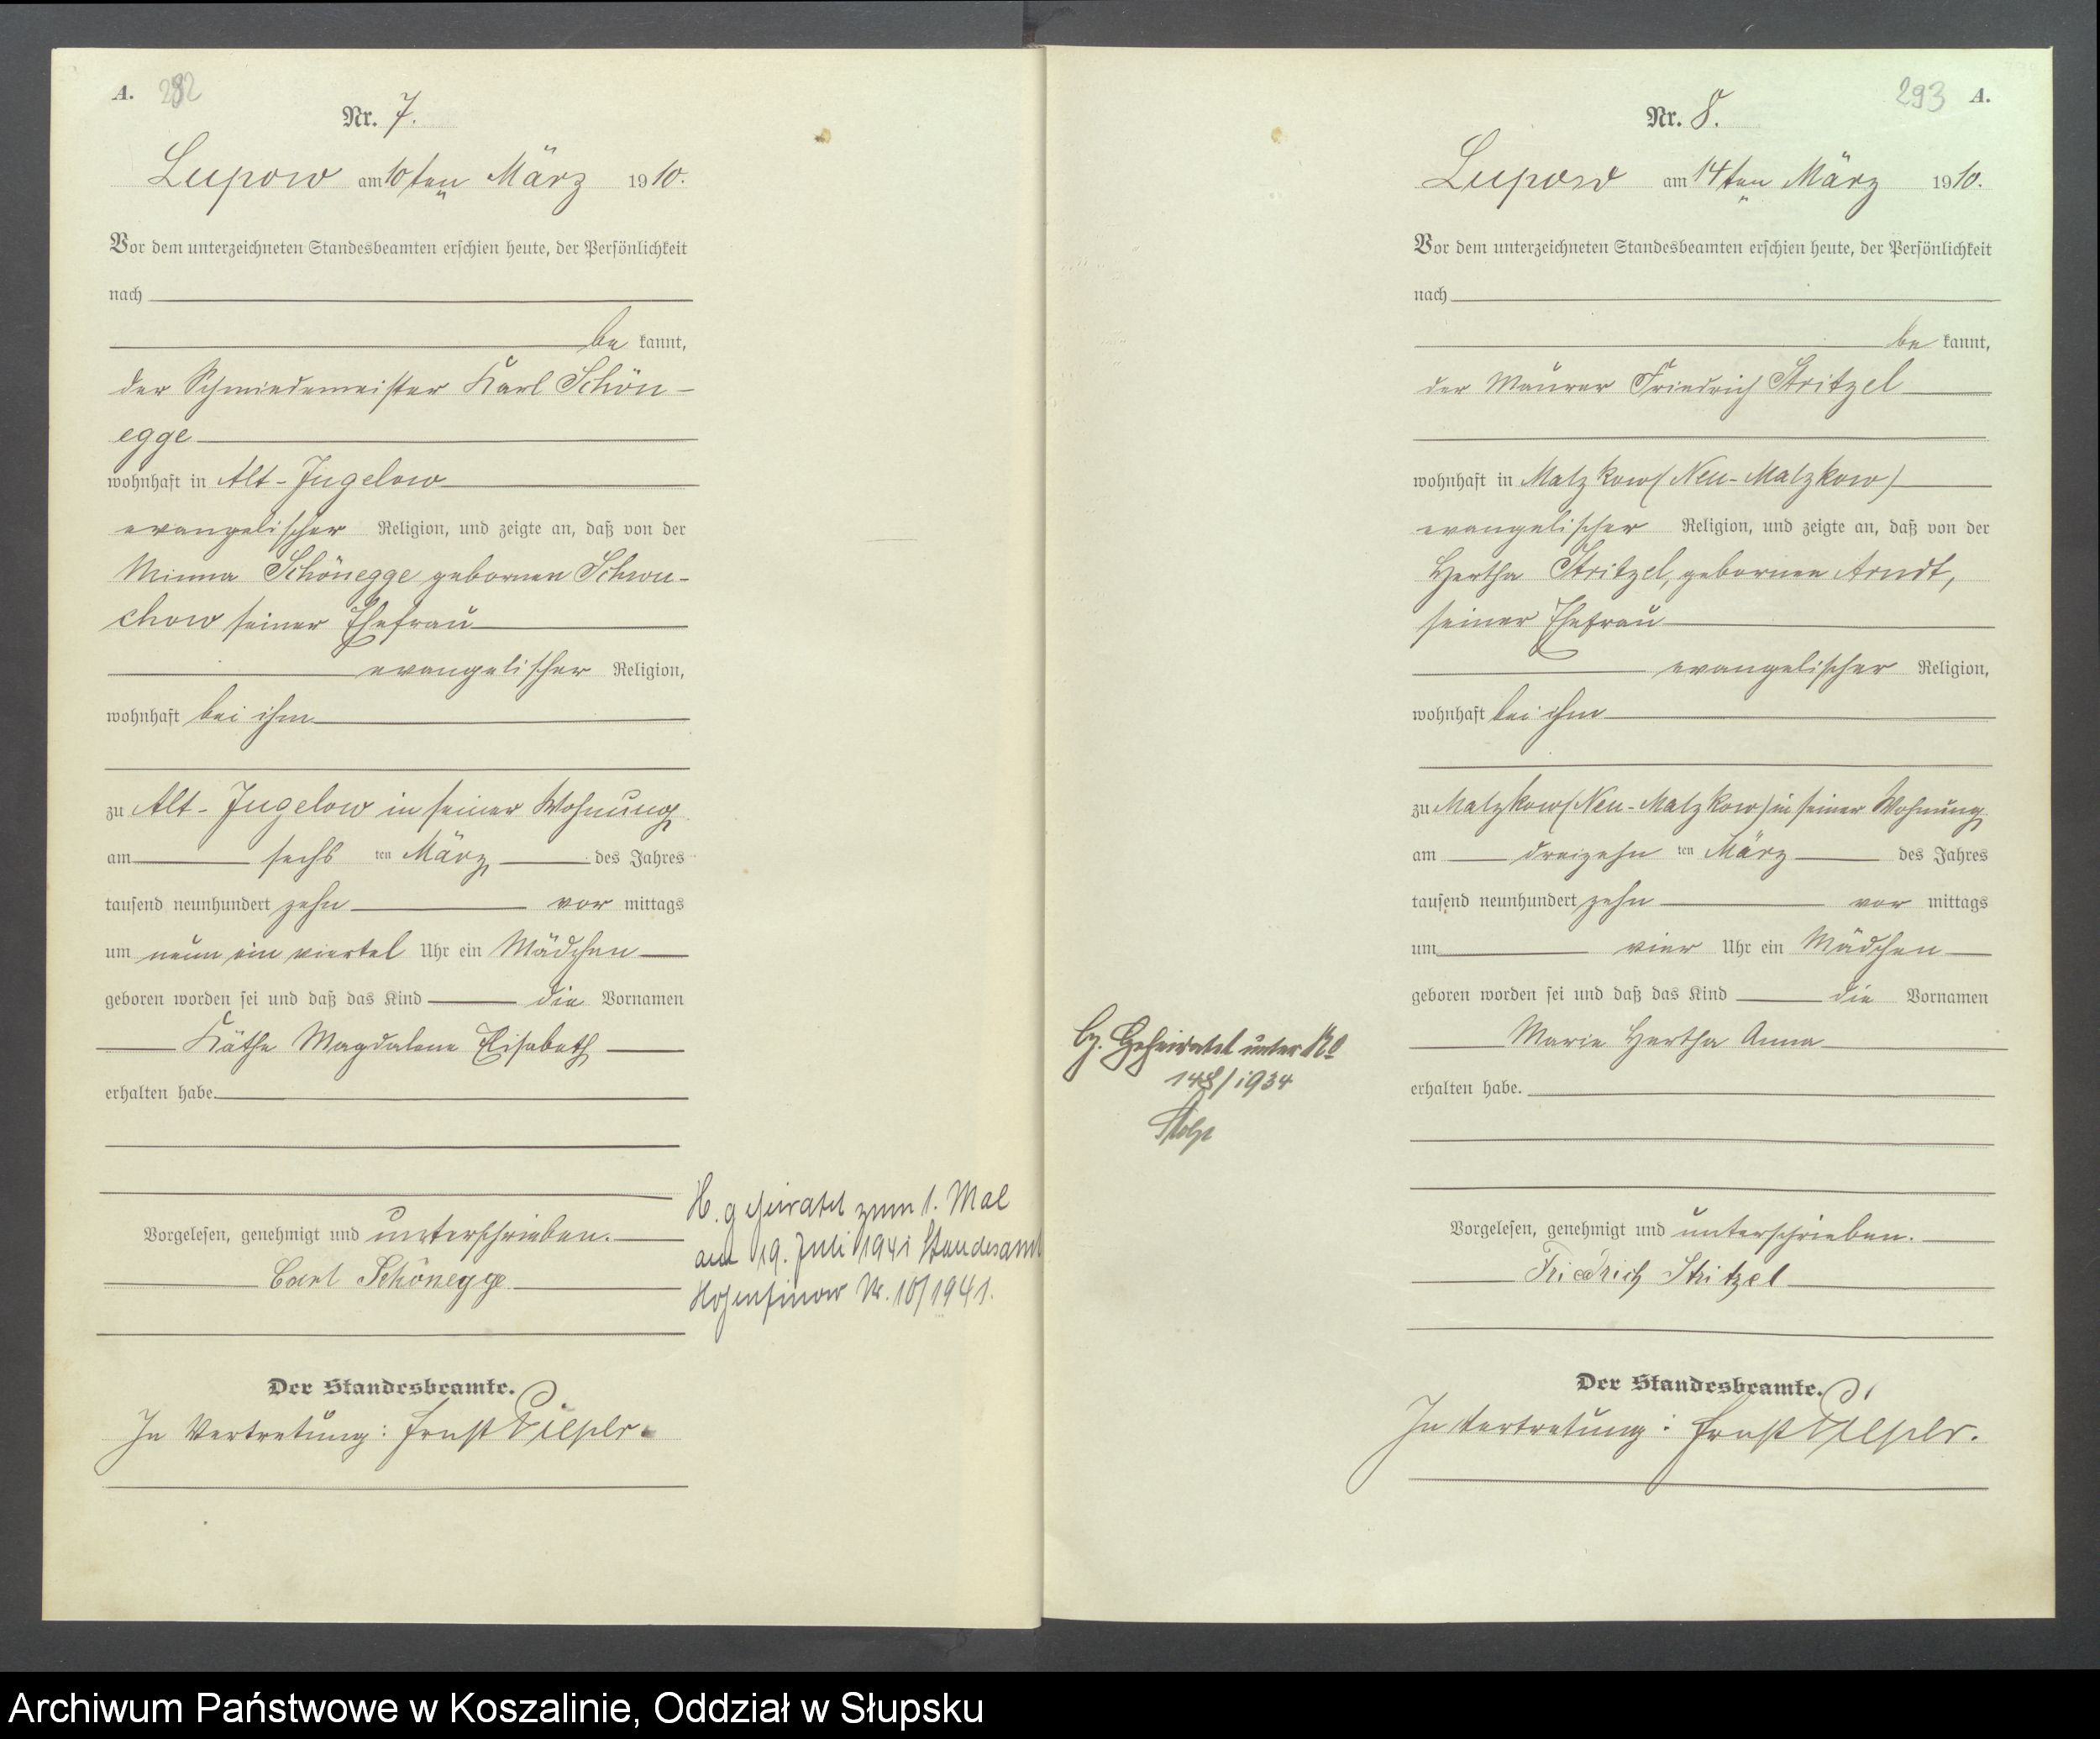 A. 292
Nr. 7.
Lupow am 10ten März 1910.
Vor dem unterzeichneten Standesbeamten erschien heute, der Persönlichkeit
nach
be kannt,
der Schmiedemeister Karl Schön-
egge
wohnhaft in Alt-Jugelow
evangelischer Religion, und zeigte an, daß von der
Minna Schönegge gebornen Schwu-
chow seiner Ehefrau
evangelischer Religion,
wohnhaft bei ihm
zu Alt-Jugelow in seiner Wohnung
am sechs ten März des Jahres
tausend neunhundert zehn vor mittags
um neun ein viertel Uhr ein Mädchen
geboren worden sei und daß das Kind die Vornamen
Käthe Magdalene Elisabeth
erhalten habe.
Vorgelesen, genehmigt und unterschrieben.
Carl Schönegge
Der Standesbeamte.
In Vertretung: Ernst
H. geheiratet zum 1. Mal
am 19. Juli 1941 Standesamt
Hohenfinow Nr. 10/1941.
293 A.
Nr. 8.
Lupow am 14ten März 1910.
Vor dem unterzeichneten Standesbeamten erschien heute, der Persönlichkeit
nach
be kannt,
der Maurer Friedrich Stritzel
wohnhaft in Matzkow (Neu-Matzkow)
evangelischer Religion, und zeigte an, daß von der
Hertha Stritzel, gebornen Arndt,
seiner Ehefrau
evangelischer Religion,
wohnhaft bei ihm
zu Matzkow (Neu-Matzkow) in seiner Wohnung
am dreizehn ten März des Jahres
tausend neunhundert zehn vor mittags
um vier Uhr ein Mädchen
geboren worden sei und daß das Kind die Vornamen
Marie Hertha Anna
erhalten habe.
Vorgelesen, genehmigt und unterschrieben.
Friedrich Stritzel
Der Standesbeamte.
In Vertretung: Ernst
Geheiratet unter No
148/1934
Stolp
Archiwum Państwowe w Koszalinie, Oddział w Słupsku